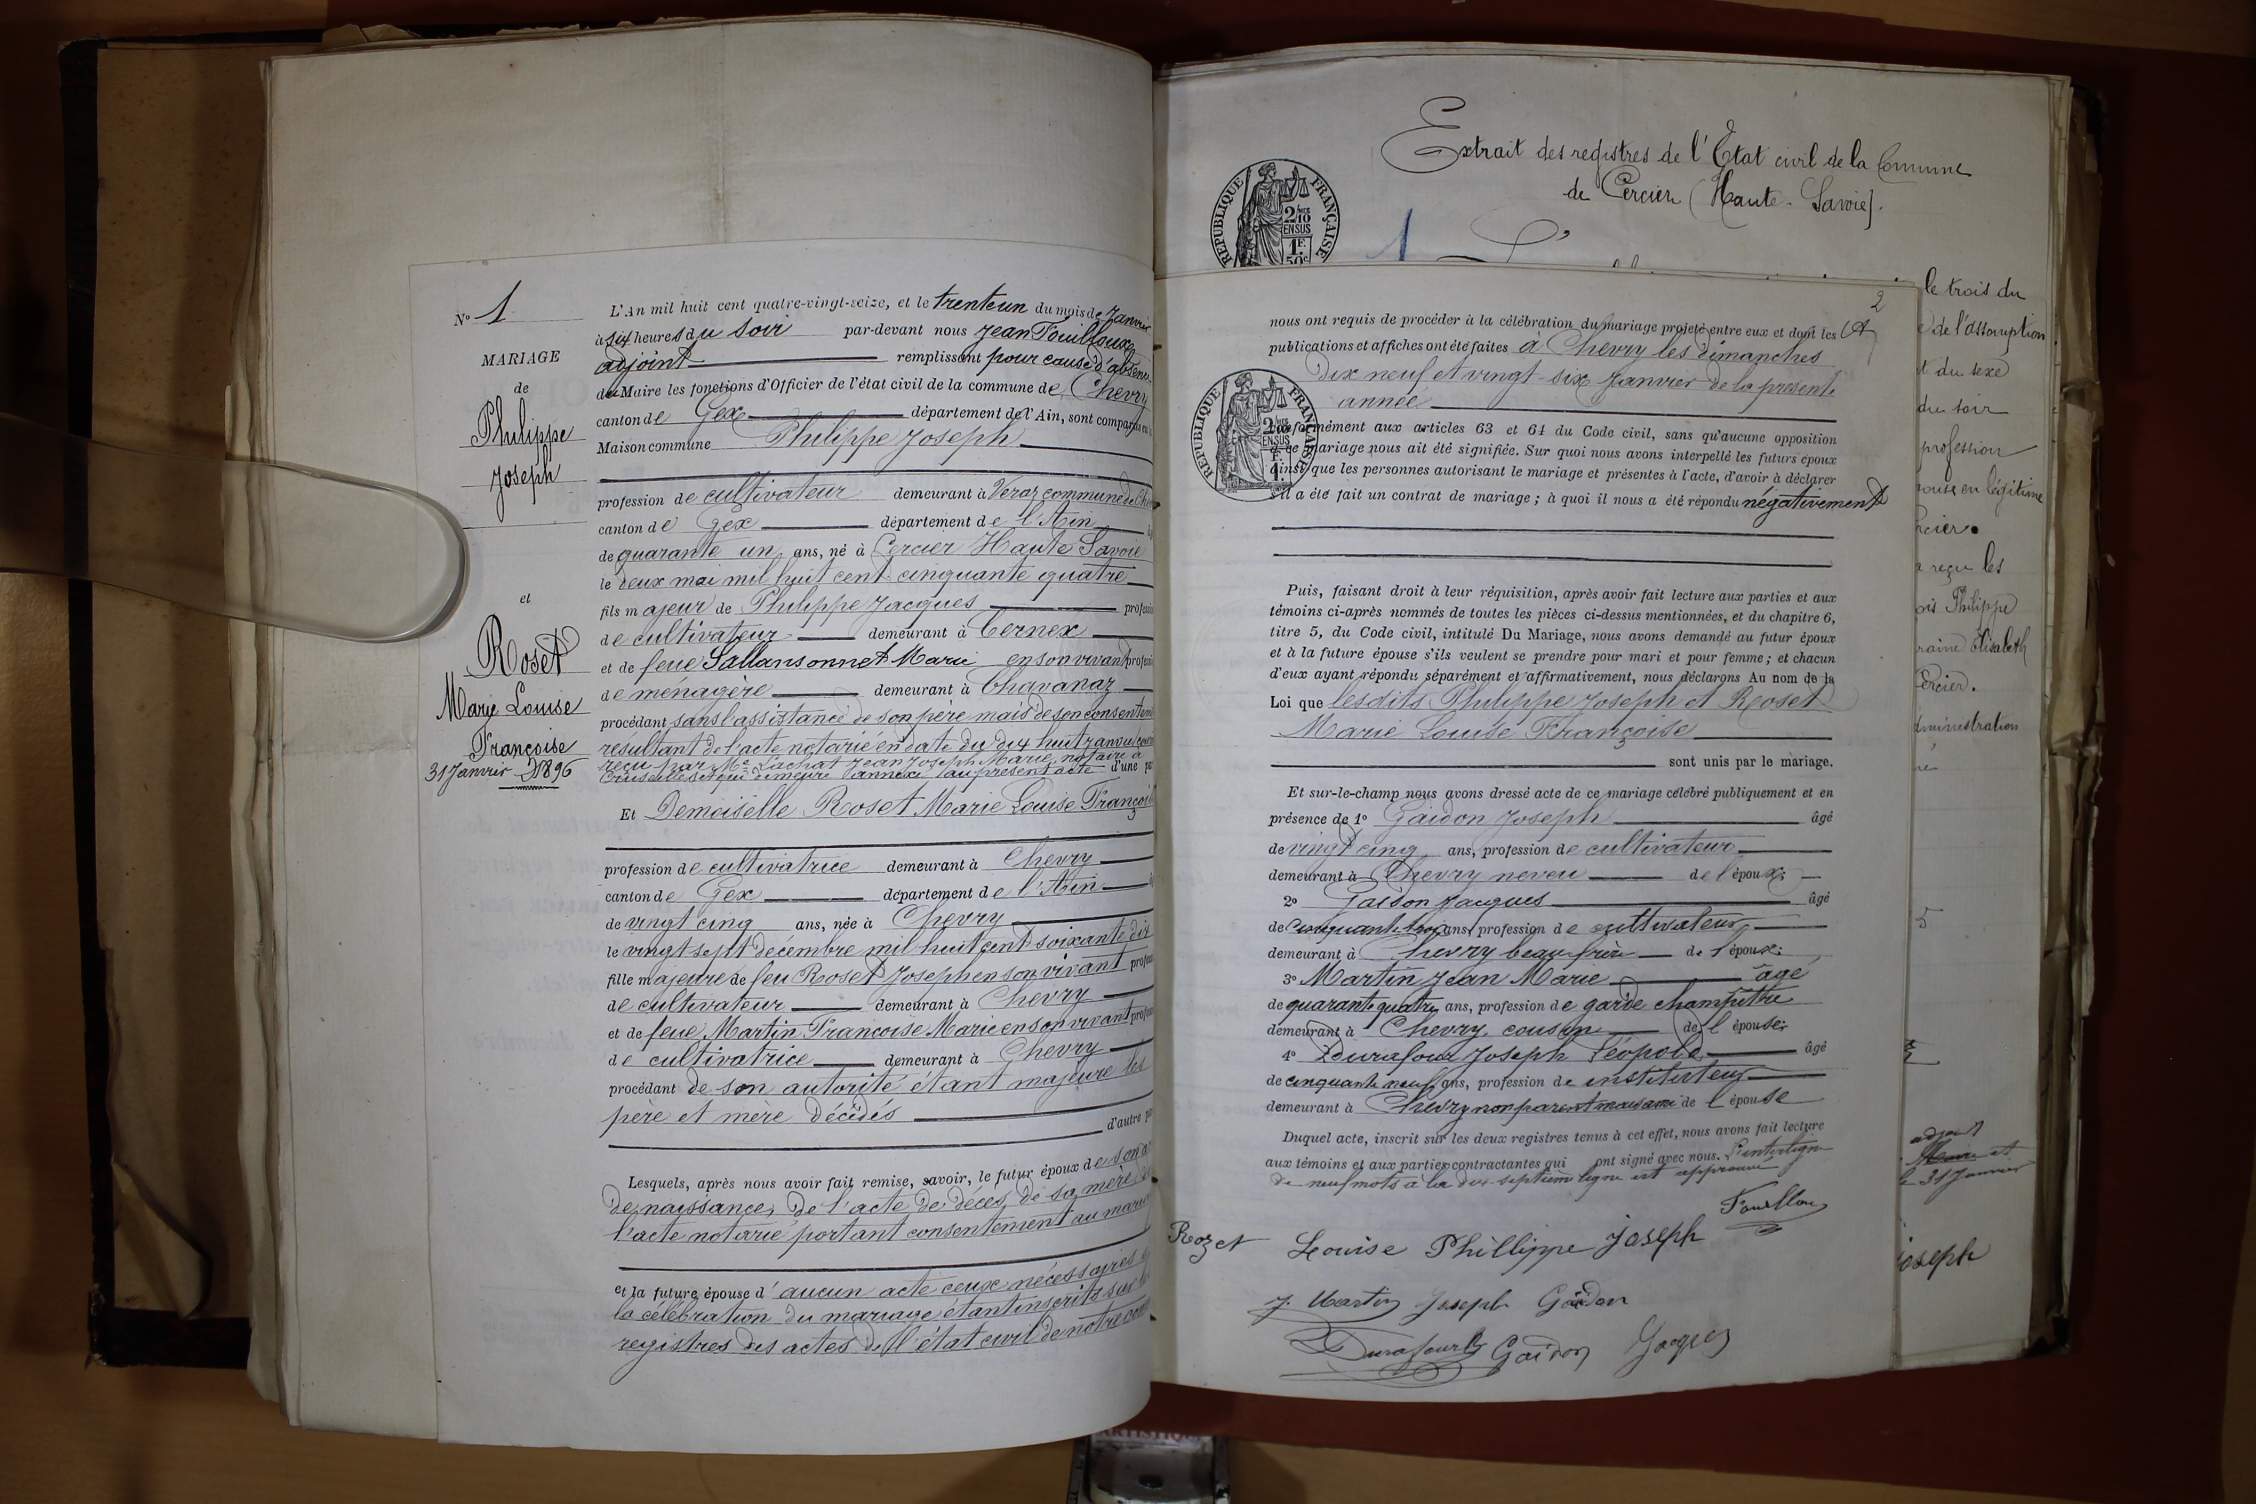 No 1
MARIAGE
de
Philippe
Joseph
et
Roset
Marie Louise
Françoise
31 Janvier 1896
L'An mil huit cent quatre-vingt-seize, et le trente un du mois de Janvier
à six heures du soir par-devant nous Jean Fouilloux
adjoint remplissant pour cause d'absence
du Maire les fonctions d'Officier de l'état civil de la commune de Chevry
canton de Gex département de l'Ain, sont comparus en la
Maison commune Philippe Joseph
profession de cultivateur demeurant à Veraz commune de
canton de Gex département de l'Ain
de quarante un ans, né à Cercier Haute Savoie
le deux mai mil huit cent cinquante quatre
fils majeur de Philippe Jacques
de cultivateur demeurant à Cernex
et de feue Sallansonnet Marie en son vivant
de ménagère demeurant à Chavanaz
procédant sans l'assistance de son père mais de son
résultant de l'acte notarié en date du dix huit janvier
reçu par Me Lachat Jean Joseph Marie notaire à
Cruseilles et qui demeure annexé au présent acte d'une
Et Demoiselle Roset Marie Louise
profession de cultivatrice demeurant à Chevry
canton de Gex département de l'Ain
de vingt cinq ans, née à Chevry
le vingt sept décembre mil huit cent soixante dix
fille majeure de feu Roset Joseph en son vivant
de cultivateur demeurant à Chevry
et de feue Martin Françoise Marie en son vivant
de cultivatrice demeurant à Chevry
procédant de son autorité étant majeure les
père et mère décédés
d'autre
Lesquels, après nous avoir fait remise, savoir, le futur époux de son
de naissance, de l'acte de décès de sa mère, de
l'acte notarié portant consentement au
et la future épouse d'aucun acte ceux nécessaires
la célébration du mariage étant inscrits sur
registres des actes de l'état civil de notre
Extrait des registres de l'Etat civil de la Commune
de Cercier (Haute-Savoie).
REPUBLIQUE FRANÇAISE
2/10 EN SUS
1F.
50c
1
2
nous ont requis de procéder à la célébration du mariage projeté entre eux et dont les
publications et affiches ont été faites à Chevry les dimanches
dix neuf et vingt-six Janvier de la présente
année
REPUBLIQUE FRANÇAISE
conformément aux articles 63 et 64 du Code civil, sans qu'aucune opposition
à ce mariage nous ait été signifiée. Sur quoi nous avons interpellé les futurs époux
ainsi que les personnes autorisant le mariage et présentes à l'acte, d'avoir à déclarer
s'il a été fait un contrat de mariage ; à quoi il nous a été répondu négativement
Puis, faisant droit à leur réquisition, après avoir fait lecture aux parties et aux
témoins ci-après nommés de toutes les pièces ci-dessus mentionnées, et du chapitre 6,
titre 5, du Code civil, intitulé Du Mariage, nous avons demandé au futur époux
et à la future épouse s'ils veulent se prendre pour mari et pour femme ; et chacun
d'eux ayant répondu séparément et affirmativement, nous déclarons Au nom de la
Loi que lesdits Philippe Joseph et Roset
Marie Louise Françoise
sont unis par le mariage.
Et sur-le-champ nous avons dressé acte de ce mariage célébré publiquement et en
présence de 1o Gaidon Joseph âgé
de vingt cinq ans, profession de cultivateur
demeurant à Chevry neveu de l'époux
2o Gaidon Jacques âgé
de cinquante trois ans, profession de cultivateur
demeurant à Chevry beau frère de l'époux
3o Martin Jean Marie âgé
de quarante quatre ans, profession de garde champêtre
demeurant à Chevry cousin de l'épouse
4o Durafour Joseph Léopold âgé
de cinquante neuf ans, profession de instituteur
demeurant à Chevry non parent mais ami de l'épouse
Duquel acte, inscrit sur les deux registres tenus à cet effet, nous avons fait lecture
aux témoins et aux parties contractantes qui ont signé avec nous. L'interligne
de neuf mots à la dix-septième ligne est approuvé
Fouilloux
Rozet Louise Phillippe Joseph
J. Martin Joseph Gaidon
Durafour Gaidon Jacques
le trois du
de l'assomption
du sexe
du soir
profession
en légitime
reçu les
Philippe
Elisabeth
Cercier.
5
adjoint
31 Janvier
Joseph